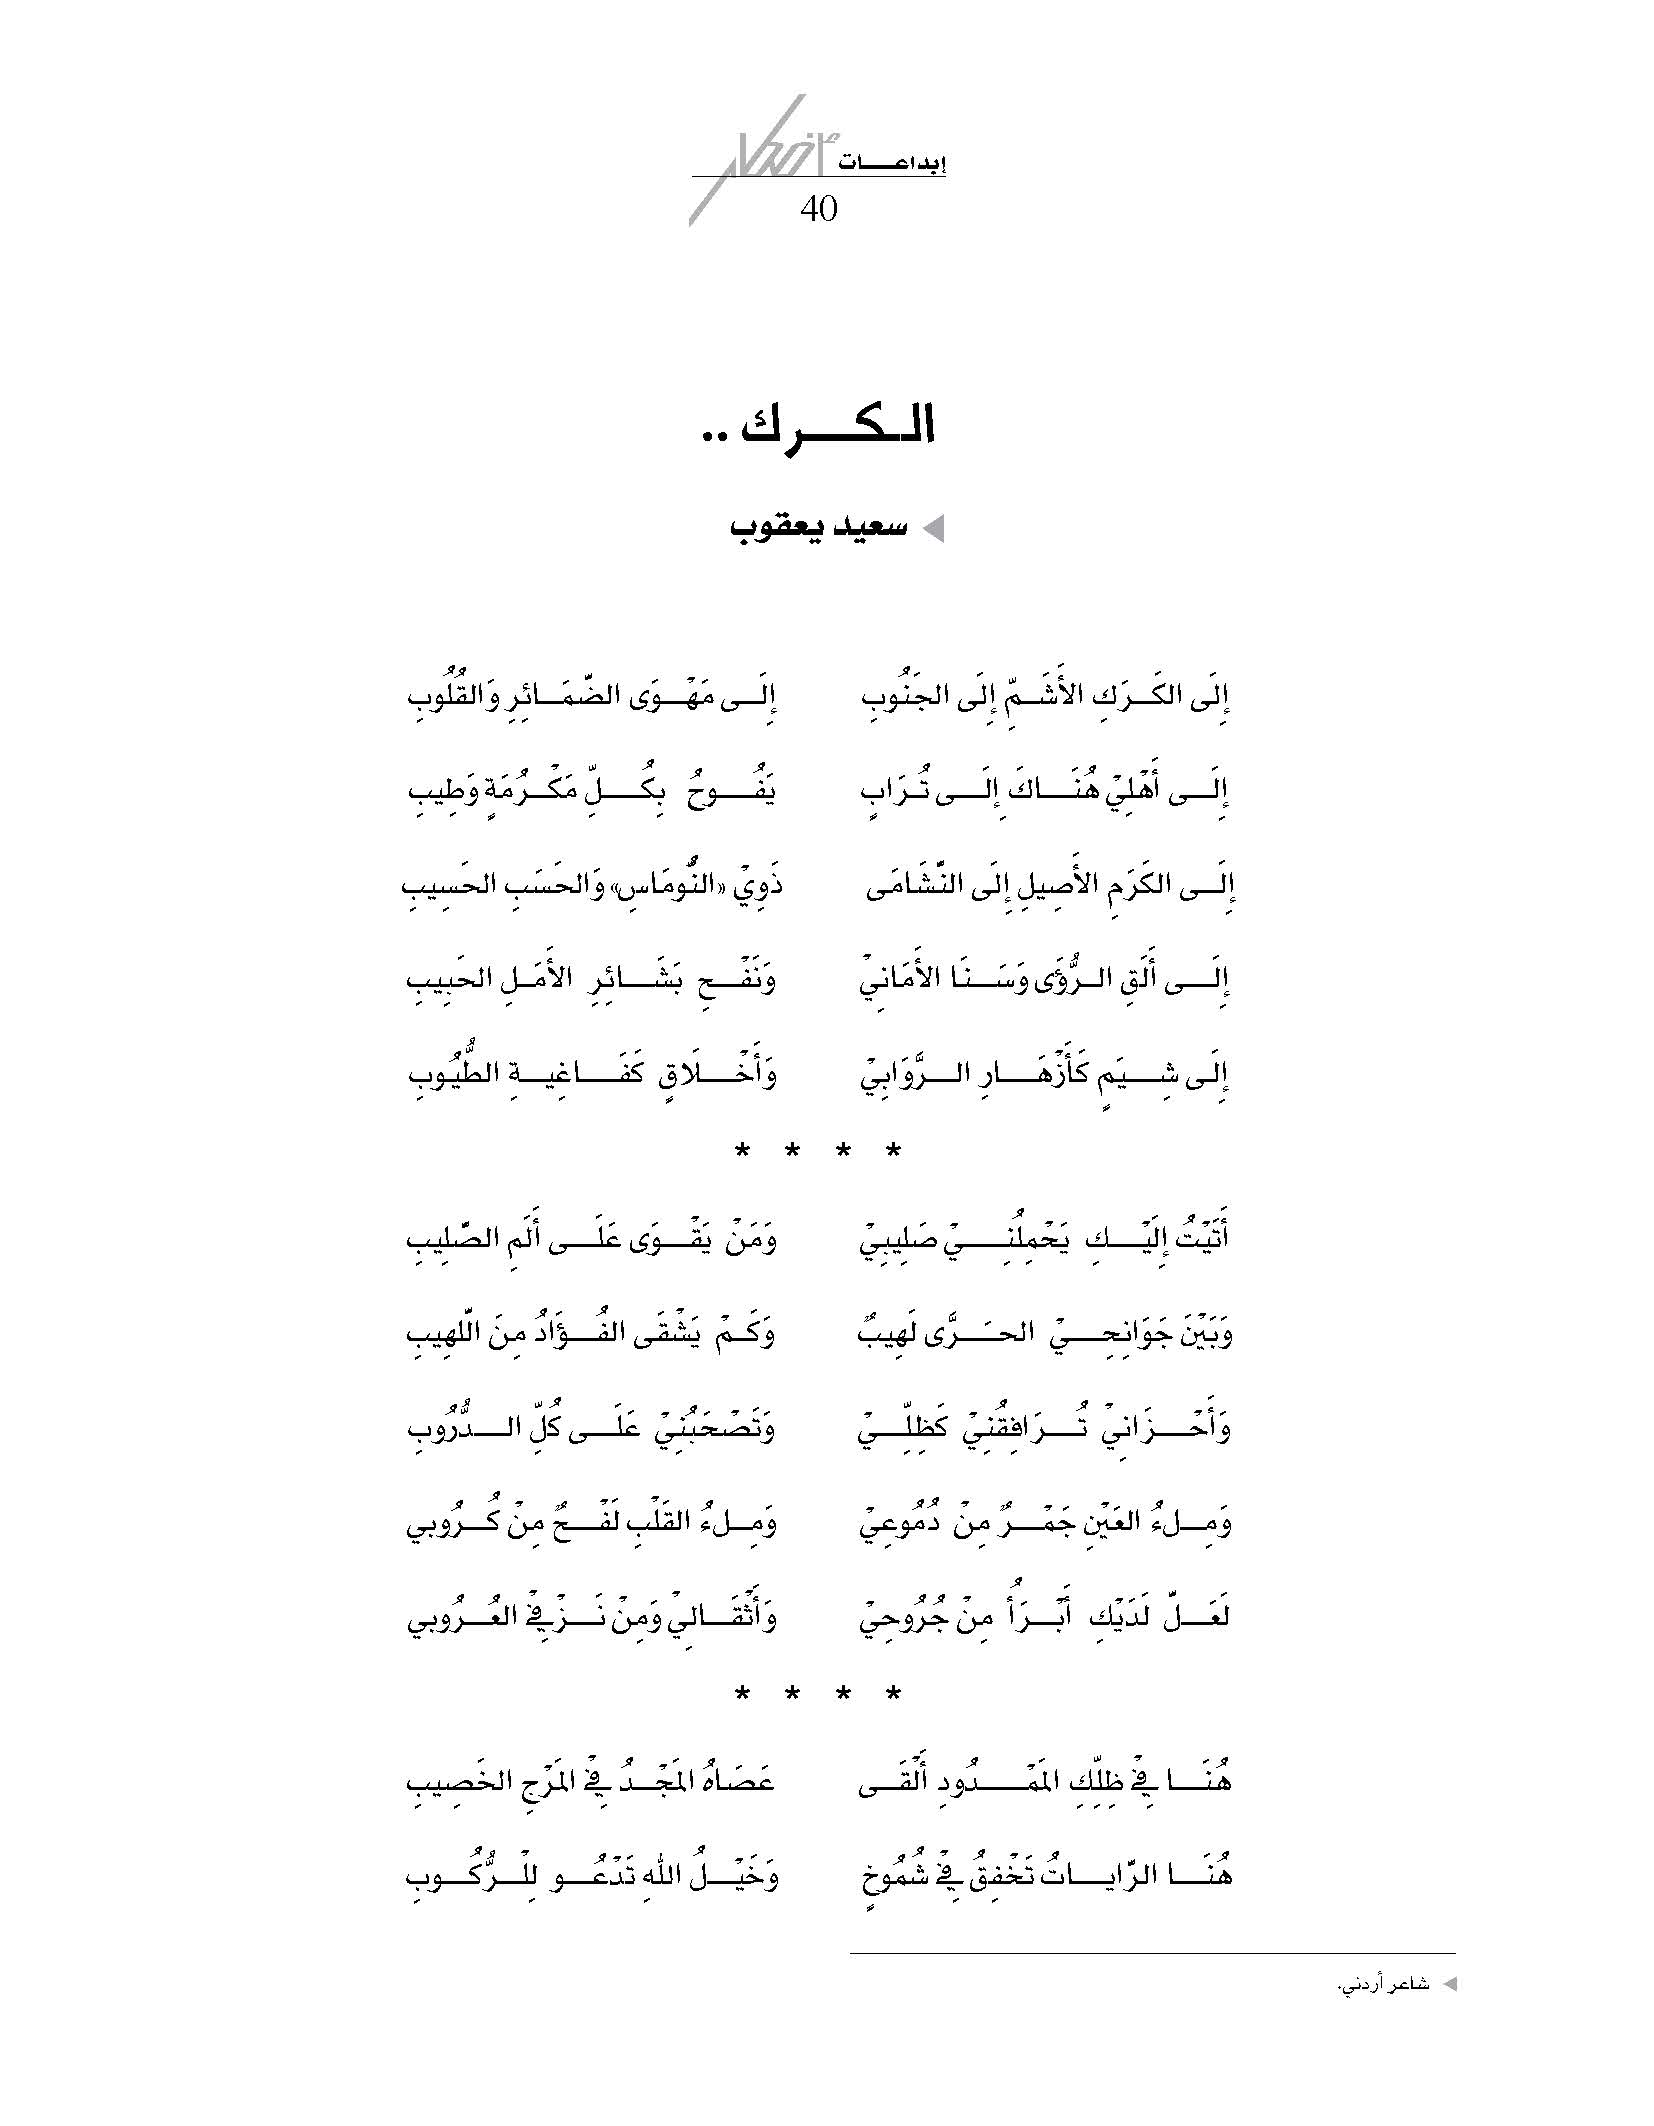 إبداعات
40
الكرك ..
سعيد يعقوب
إِلَى الكَرَكِ الأَشَمِّ إِلَى الجَنُوبِ إِلَى مَهْوَى الضَّمَائِرِ وَالقُلُوبِ
إِلَى أَهْلِيْ هُنَاكَ إِلَى تُرَابٍ يَفُوحُ بِكُلِّ مَكْرُمَةٍ وَطِيبِ
إِلَى الكَرَمِ الأَصِيلِ إِلَى النَّشَامَى ذَوِيْ «النُّومَاسِ» وَالحَسَبِ الحَسِيبِ
إِلَى أَلَقِ الرُّؤَى وَسَنَا الأَمَانِيْ وَنَفْحِ بَشَائِرِ الأَمَلِ الحَبِيبِ
إِلَى شِيَمٍ كَأَزْهَارِ الرَّوَابِيْ وَأَخْلَاقٍ كَفَاغِيةِ الطُّيُوبِ
* * * *
أَتَيْتُ إِلَيْكِ يَحْمِلُنِيْ صَلِيبِيْ وَمَنْ يَقْوَى عَلَى أَلَمِ الصَّلِيبِ
وَبَيْنَ جَوَانِحِيْ الحَرَّى لَهِيبٌ وَكَمْ يَشْقَى الفُؤَادُ مِنَ اللَّهِيبِ
وَأَحْزَانِيْ تُرَافِقُنِيْ كَظِلِّيْ وَتَصْحَبُنِيْ عَلَى كُلِّ الدُّرُوبِ
وَمِلءُ العَيْنِ جَمْرٌ مِنْ دُمُوعِيْ وَمِلءُ القَلْبِ لَفْحٌ مِنْ كُرُوبي
لَعَلَّ لَدَيْكِ أَبْرَأُ مِنْ جُرُوحِيْ وَأَثْقَالِيْ وَمِنْ نَزْفِيْ العُرُوبي
* * * *
هُنَا فِيْ ظِلِّكِ المَمْدُودِ أَلْقَى عَصَاهُ المَجْدُ فِيْ المَرْجِ الخَصِيبِ
هُنَا الرَّايَاتُ تَخْفِقُ فِيْ شُمُوخٍ وَخَيْلُ اللهِ تَدْعُو لِلْرُّكُوبِ
شاعر أردني.